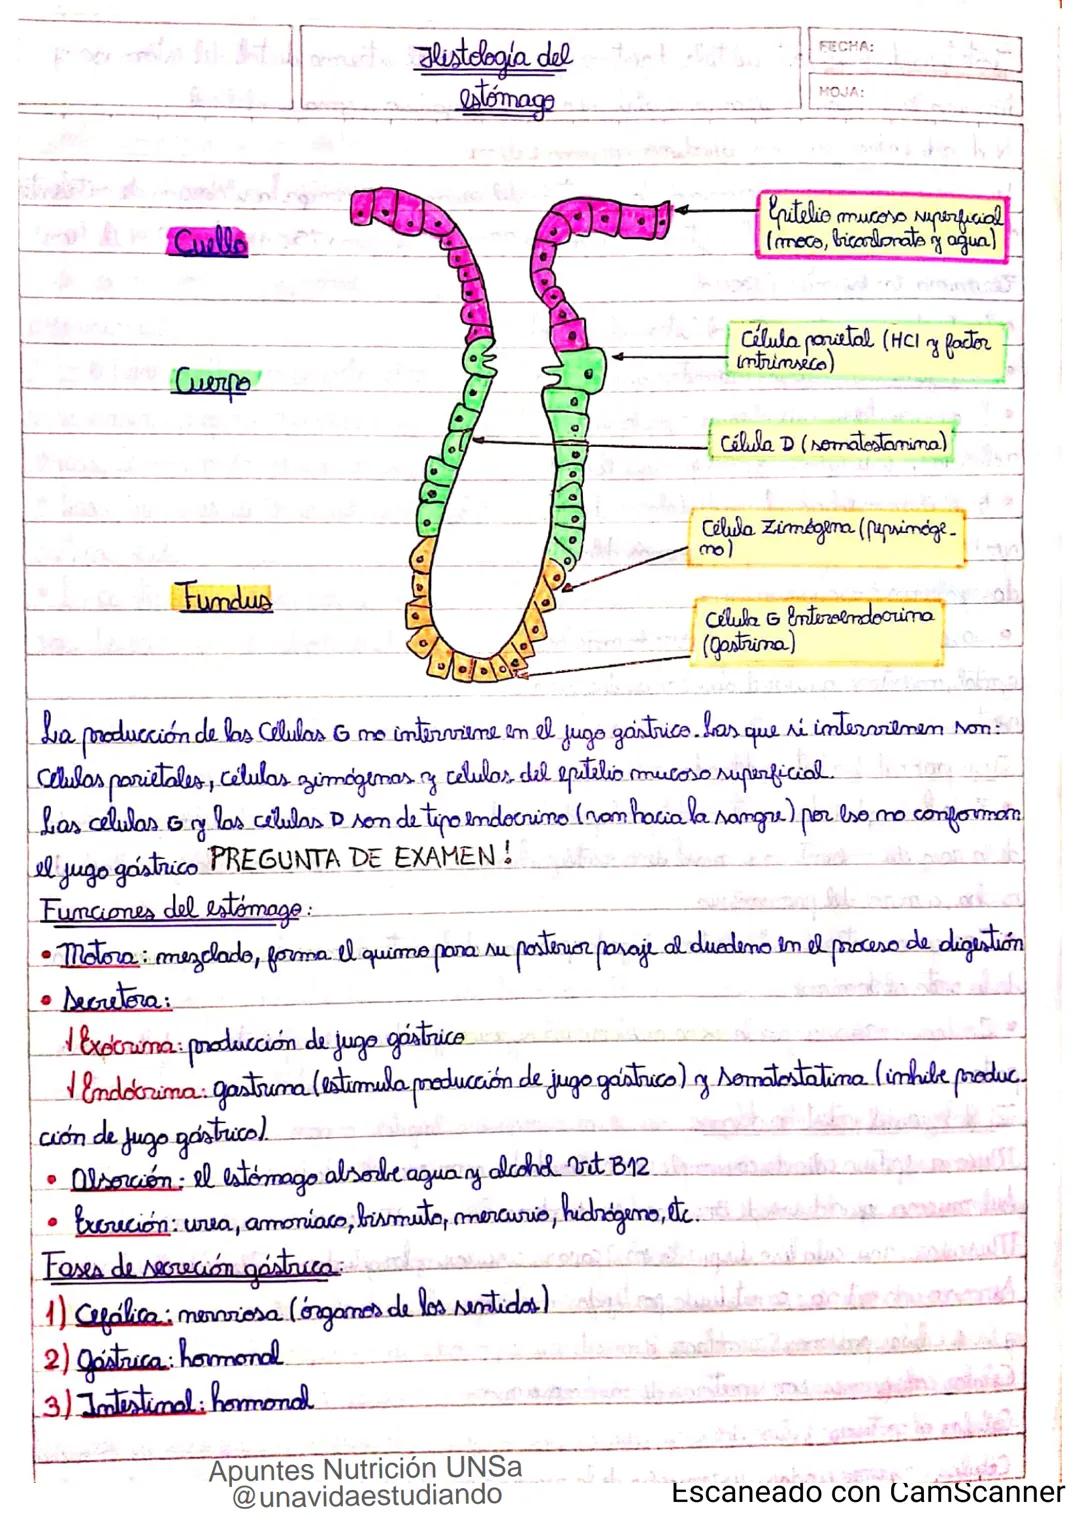 Histología del
estómago
FECHA:
HOJA:
Cuello
Epitelio mucoso superficial
(moco, bicarbonato y agua)
Célula parietal (HCl y factor
intrínseco)
Cuerpo
Célula D (somatostanina)
Célula Zimógena (pepsinóge-
no)
Fundus
Célula G Enteroendocrina
(gastrina)
La producción de las Células G no interviene en el jugo gástrico. Las que si intervienen son:
Células parietales, células zimógenas y células del epitelio mucoso superficial.
Las células G y las células D son de tipo endocrino (van hacia la sangre) por eso no conforman
el jugo gástrico PREGUNTA DE EXAMEN!
Funciones del estómago:
• Motora: mezclado, forma el quimo para su posterior pasaje al duodeno en el proceso de digestión
• Secretora:
↓ Exócrina: producción de jugo gástrico
↓ Endócrina: gastrina (estimula producción de jugo gástrico) y somatostatina (inhibe produc-
ción de jugo gástrico).
• Absorción: el estómago absorbe agua y alcohol vit B12
• Excreción: urea, amoníaco, bismuto, mercurio, hidrógeno, etc.
Fases de secreción gástrica:
1) Cefálica: nerviosa (órganos de los sentidos)
2) Gástrica: hormonal
3) Intestinal: hormonal
Apuntes Nutrición UNSa
@unavidaestudiando
Escaneado con CamScanner